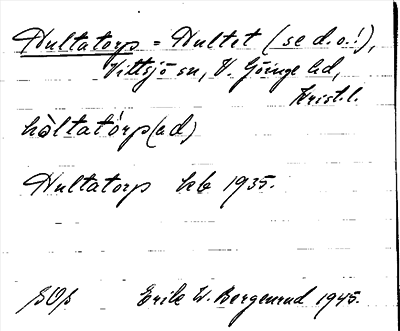 Hultatorp = Hultet (se d.o.!),
Vittsjö sn, V. Göinge hd,
Krist.l.
hòltatórp(ad)
Hultatorp kb 1935.
SOs Erik W. Bergenrud 1945.